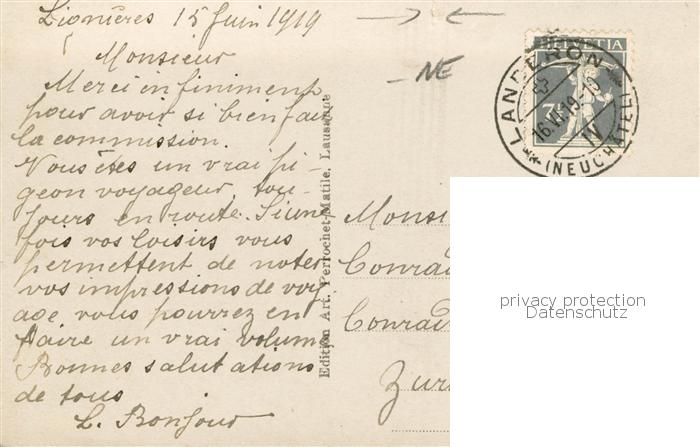 Lignières 15 Juin 1919
Monsieur
Merci infiniment
pour avoir si bien fait
la commission.
Vous êtes un vrai pi-
geon voyageur, tou-
jours en route. Si une
fois vos loisirs vous
permettent de noter
vos impressions de voy
age vous pourrez en
faire un vrai volume
Bonnes salutations
de tous
L. Bonjour
Edition Art. Perrochet-Matile, Lausanne
NE
HELVETIA
7½
LANDERON
16.VI.19-10
IV
(NEUCHÂTEL)
Monsi
Conrad
Conrad
Zur
privacy protection
Datenschutz